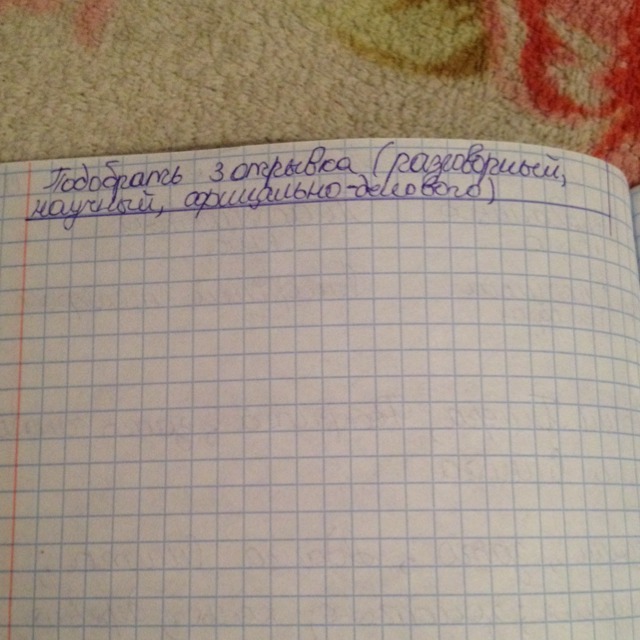 Подобрать 3 отрывка (разговорный,
научный, официально-делового)